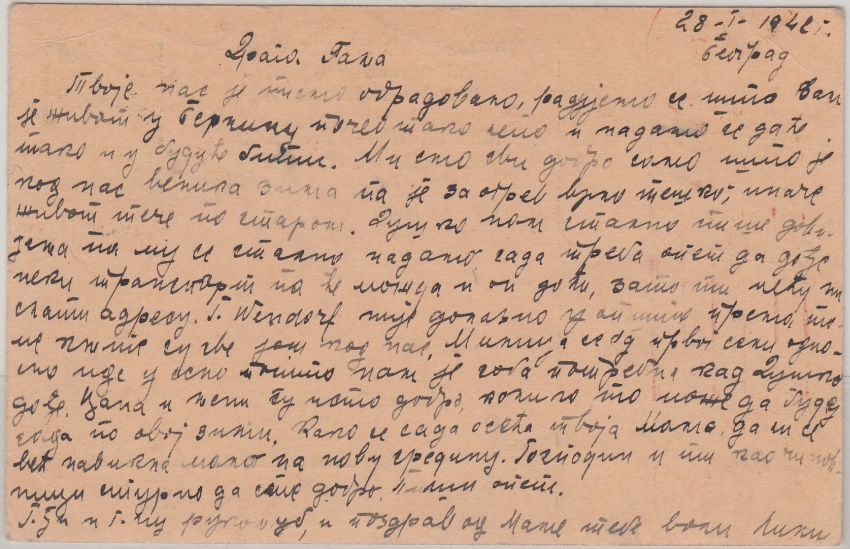 28-I-1942 г.
Београд
Драга
Твоје нас је писмо обрадовало, радујемо се што Вам
је живот у Берлину почео тако лепо и надамо се да ће
тако и у будуће бити. Ми смо сви добро само што је
код нас велика зима па је за огрев врло тешко; иначе
живот тече по старом. Душко нам стално пише
па му се стално надамо сада треба опет да дође
неки транспорт па ће можда и он доћи, зато ти нећу ни
слати адресу. Г. Wendorf није долазио у опште према то-
ме су све још код нас,
пошто нам је соба потребна кад Душко
дође. и ја смо добро, колико то може да буде
сада по овој зими. Како се сада осећа твоја Мама, да ли се
већ навикла мало на нову средину. Господин и ти као чинов-
ници сигурно да сте добро. Пиши опет.
и поздрав од Маме тебе воли